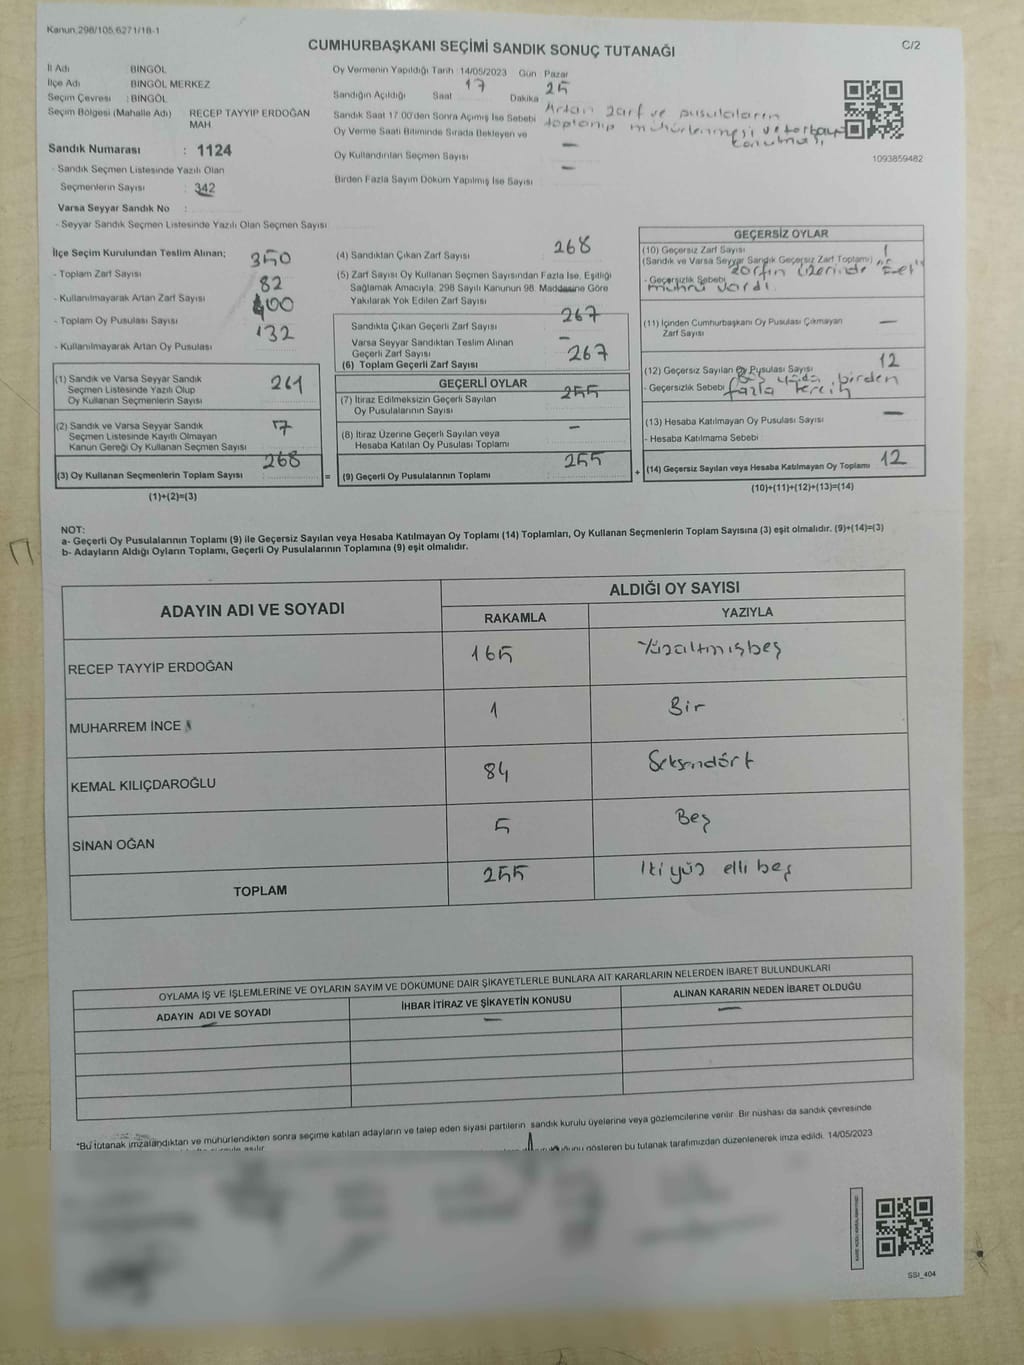 Kanun.298/105,6271/18-1
C/2
CUMHURBAŞKANI SEÇİMİ SANDIK SONUÇ TUTANAĞI
İl Adı BİNGÖL
İlçe Adı BİNGÖL MERKEZ
Seçim Çevresi : BİNGÖL
Seçim Bölgesi (Mahalle Adı) RECEP TAYYİP ERDOĞAN
MAH.
Sandık Numarası : 1124
- Sandık Seçmen Listesinde Yazılı Olan
Seçmenlerin Sayısı : 342
Varsa Seyyar Sandık No :
- Seyyar Sandık Seçmen Listesinde Yazılı Olan Seçmen Sayısı
Oy Vermenin Yapıldığı Tarih :14/05/2023 Gün Pazar
Sandığın Açıldığı Saat 17 Dakika 25
Sandık Saat 17.00'den Sonra Açımış İse Sebebi Artan zarf ve pusulaların
toplanıp mühürlenmesi ve torbaya
konulması
Oy Verme Saati Bitiminde Sırada Bekleyen ve
Oy Kullandırılan Seçmen Sayısı —
Birden Fazla Sayım Döküm Yapılmış İse Sayısı —
1093859482
İlçe Seçim Kurulundan Teslim Alınan;
- Toplam Zarf Sayısı 350
- Kullanılmayarak Artan Zarf Sayısı 82
- Toplam Oy Pusulası Sayısı 400
- Kullanılmayarak Artan Oy Pusulası 132
(1) Sandık ve Varsa Seyyar Sandık
Seçmen Listesinde Yazılı Olup
Oy Kullanan Seçmenlerin Sayısı 261
(2) Sandık ve Varsa Seyyar Sandık
Seçmen Listesinde Kayıtlı Olmayan
Kanun Gereği Oy Kullanan Seçmen Sayısı 7
(3) Oy Kullanan Seçmenlerin Toplam Sayısı 268
(1)+(2)=(3)
(4) Sandıktan Çıkan Zarf Sayısı 268
(5) Zarf Sayısı Oy Kullanan Seçmen Sayısından Fazla İse, Eşitliği
Sağlamak Amacıyla; 298 Sayılı Kanunun 98. Maddesine Göre
Yakılarak Yok Edilen Zarf Sayısı
Sandıkta Çıkan Geçerli Zarf Sayısı 267
Varsa Seyyar Sandıktan Teslim Alınan
Geçerli Zarf Sayısı —
(6) Toplam Geçerli Zarf Sayısı 267
GEÇERLİ OYLAR
(7) İtiraz Edilmeksizin Geçerli Sayılan
Oy Pusulalarının Sayısı 255
(8) İtiraz Üzerine Geçerli Sayılan veya
Hesaba Katılan Oy Pusulası Toplamı —
= (9) Geçerli Oy Pusulalarının Toplamı 255
GEÇERSİZ OYLAR
(10) Geçersiz Zarf Sayısı 1
(Sandık ve Varsa Seyyar Sandık Geçersiz Zarf Toplamı)
- Geçersizlik Sebebi zarfın üzerinde
mührü vardı.
(11) İçinden Cumhurbaşkanı Oy Pusulası Çıkmayan
Zarf Sayısı —
(12) Geçersiz Sayılan Oy Pusulası Sayısı 12
- Geçersizlik Sebebi birden
fazla tercih
(13) Hesaba Katılmayan Oy Pusulası Sayısı —
- Hesaba Katılmama Sebebi
+ (14) Geçersiz Sayılan veya Hesaba Katılmayan Oy Toplamı 12
(10)+(11)+(12)+(13)=(14)
NOT:
a- Geçerli Oy Pusulalarının Toplamı (9) ile Geçersiz Sayılan veya Hesaba Katılmayan Oy Toplamı (14) Toplamları, Oy Kullanan Seçmenlerin Toplam Sayısına (3) eşit olmalıdır. (9)+(14)=(3)
b- Adayların Aldığı Oyların Toplamı, Geçerli Oy Pusulalarının Toplamına (9) eşit olmalıdır.
ADAYIN ADI VE SOYADI
ALDIĞI OY SAYISI
RAKAMLA YAZIYLA
RECEP TAYYİP ERDOĞAN 165 Yüzaltmışbeş
MUHARREM İNCE 1 Bir
KEMAL KILIÇDAROĞLU 84 Seksendört
SİNAN OĞAN 5 Beş
TOPLAM 255 İkiyüz elli beş
OYLAMA İŞ VE İŞLEMLERİNE VE OYLARIN SAYIM VE DÖKÜMÜNE DAİR ŞİKAYETLERLE BUNLARA AİT KARARLARIN NELERDEN İBARET BULUNDUKLARI
ADAYIN ADI VE SOYADI İHBAR İTİRAZ VE ŞİKAYETİN KONUSU ALINAN KARARIN NEDEN İBARET OLDUĞU
— — —
*Bu tutanak imzalandıktan ve mühürlendikten sonra seçime katılan adayların ve talep eden siyasi partilerin sandık kurulu üyelerine veya gözlemcilerine verilir. Bir nüshası da sandık çevresinde
gösteren bu tutanak tarafımızdan düzenlenerek imza edildi. 14/05/2023
SSİ_404